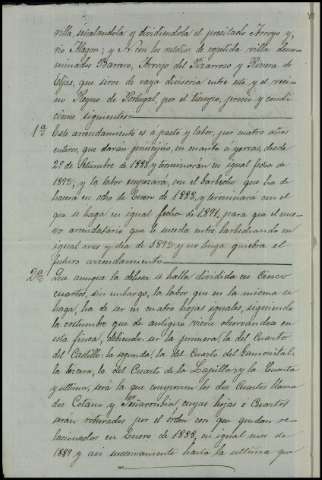 villa, señalandola y dividiendola el precitado Arroyo y
rio Alagon; y A con los restos de repetida villa deno-
minados Barrero, Arroyo del Pizarroso y Rivera de
Eljas, que sirve de raya divisoria entre esta y el veci-
no Reyno de Portugal, por el tiempo, precio y condi-
ciones siguientes
1ª Este arrendamiento es a pasto y labor, por cuatro años
enteros, que darán principio, en cuanto a yerbas, desde
29 de Setiembre de 1888 y terminarán en igual fecha de
1892; y la labor empezará, con el barbecho que ha de
hacerse en de Enero de 1888, y terminará con el
que se haga en igual fecha de 1891, para que el nue-
vo arrendatario que le suceda entre barbechando en
igual mes y dia de 1892 y no tenga quiebra el
futuro arrendamiento
2ª Que aunque la dehesa se halla dividida en cinco
cuartos, sin embargo, la labor que en la misma se
haga, ha de ser en cuatro hojas iguales, siguiendo
la costumbre que de antiguo viene observandose en
esta finca, debiendo ser la primera, la del Cuarto
del Castillo: la segunda, la del Cuarto del
la tercera, la del Cuarto de la Zapilla: y la Cuarta
y ultima, será la que componen los dos Cuartos llama-
dos Cotani y Peñarrombia, cuyas hojas ó Cuartos
serán roturados por el orden con que quedan re-
lacionados en Enero de 1888, en igual mes de
1889 y así sucesivamente hasta la ultima que